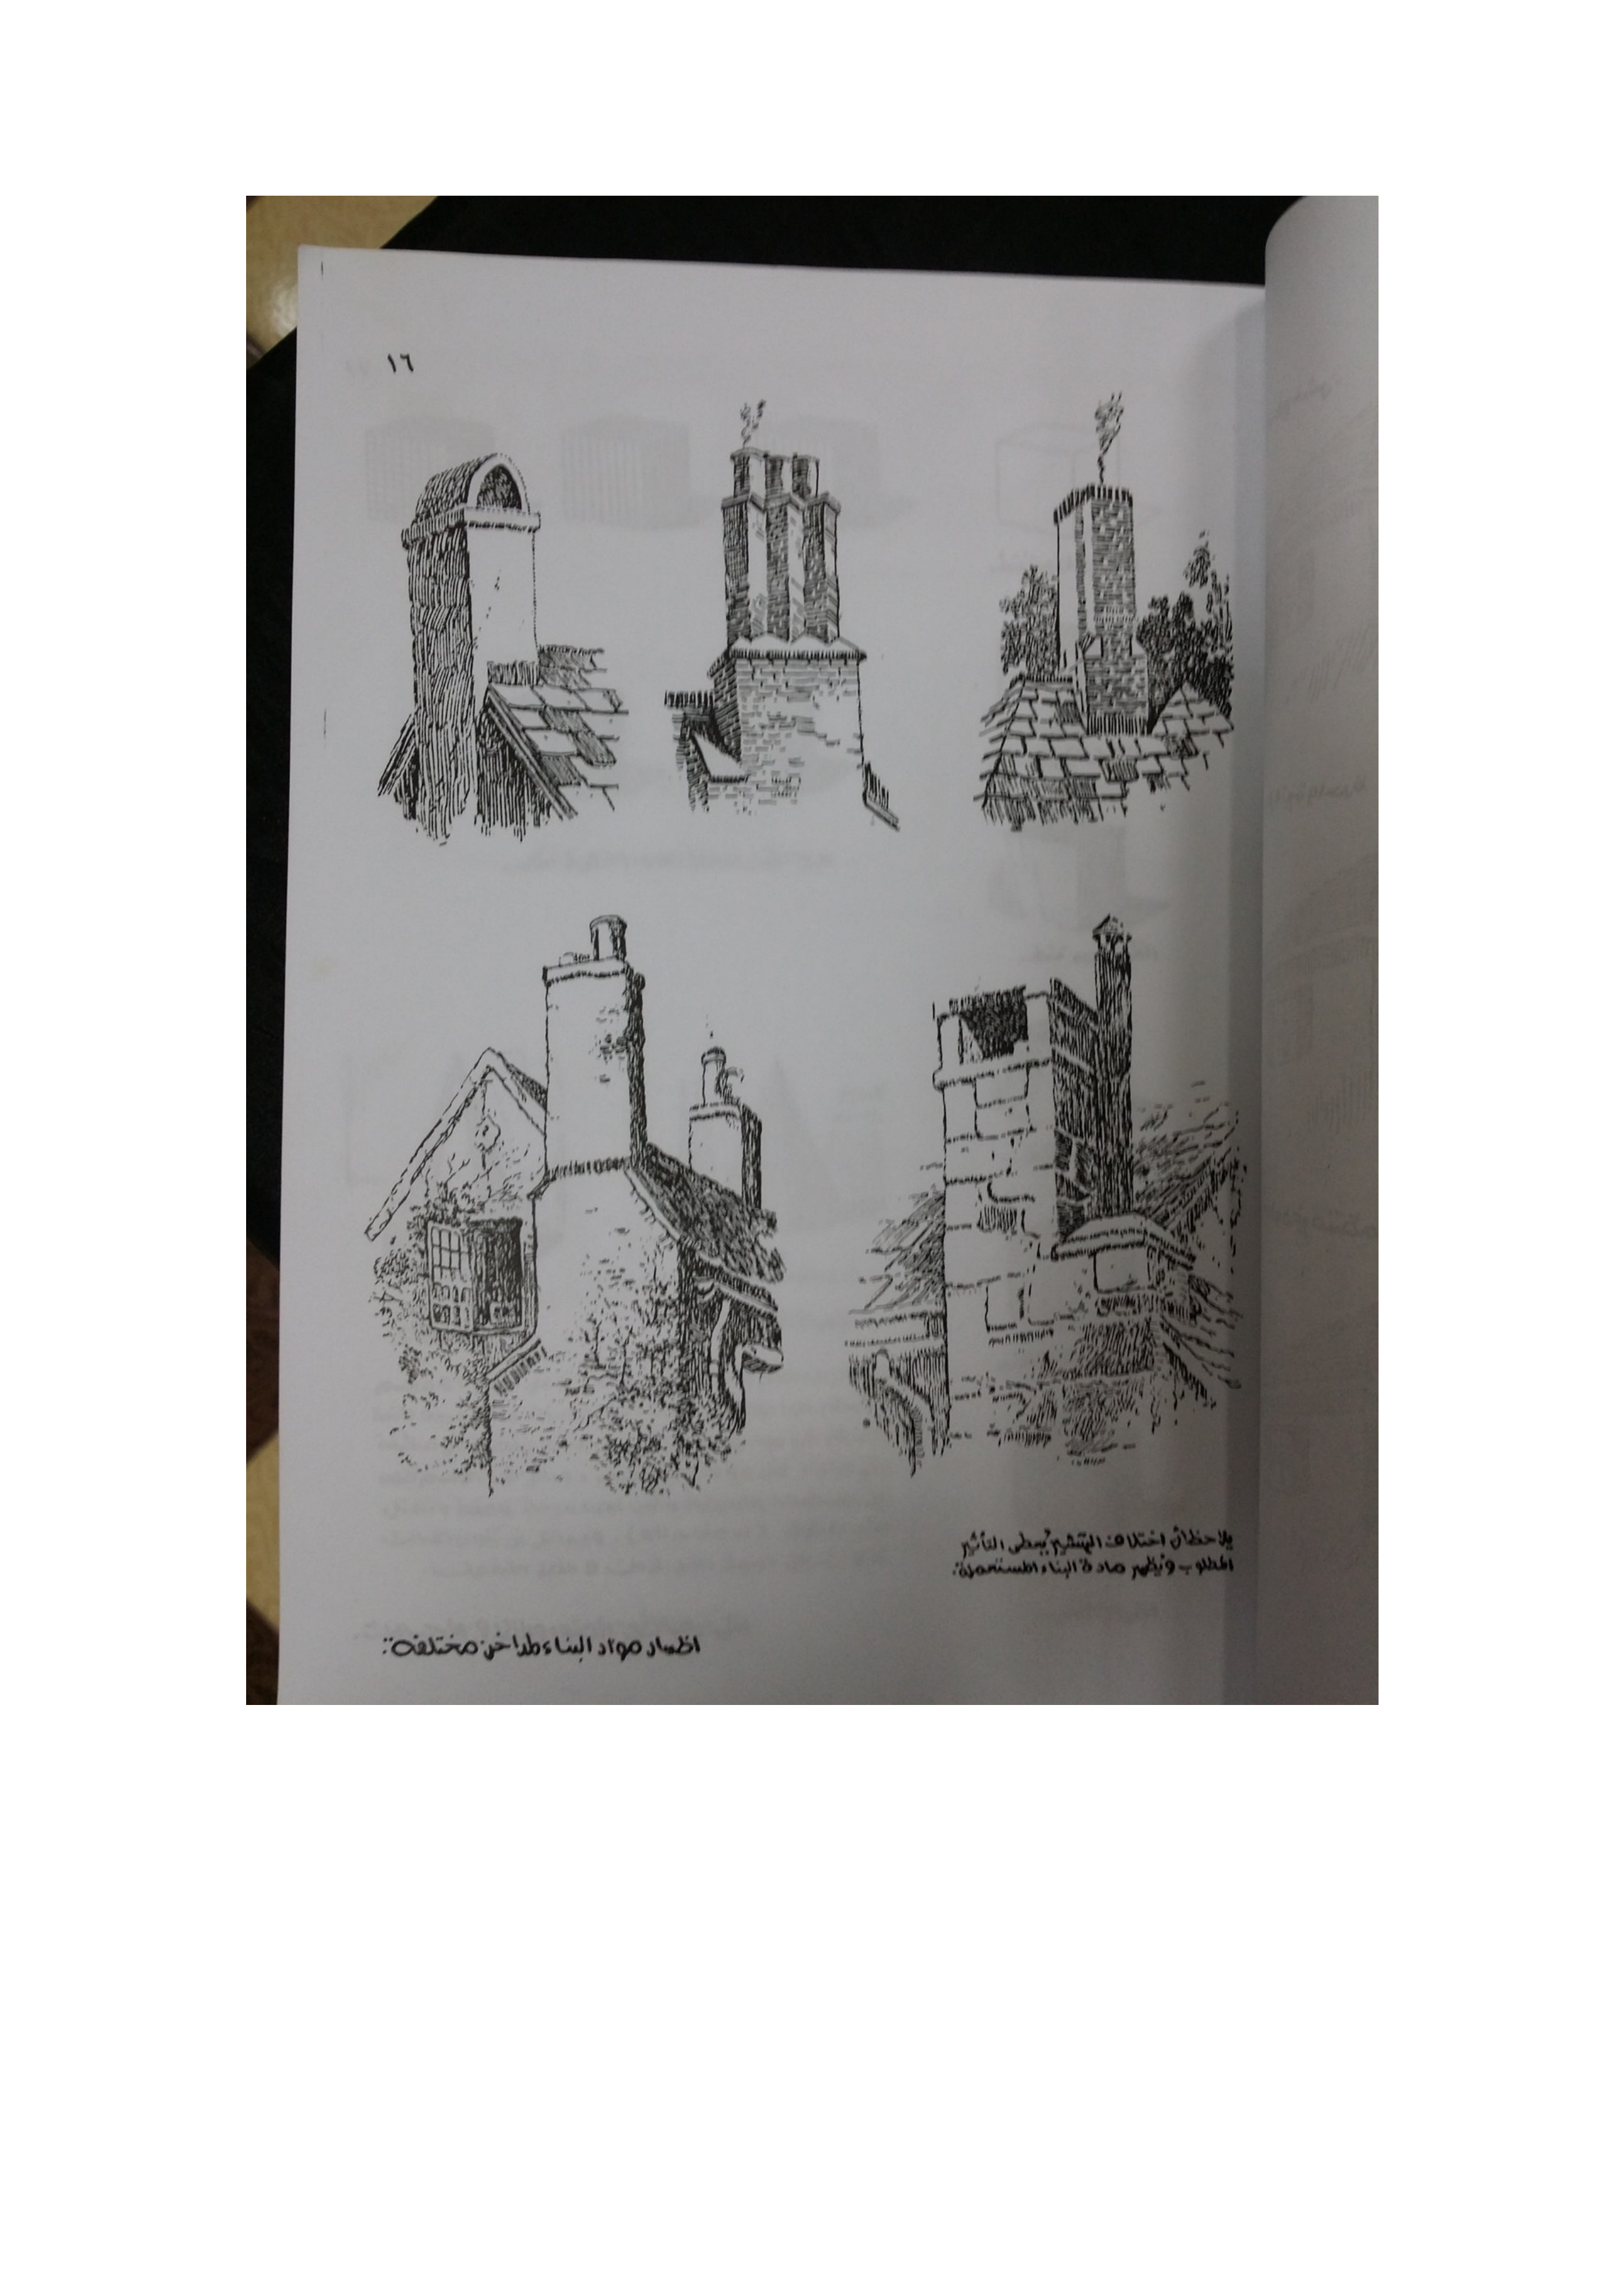 ١٦
يلاحظ أن اختلاف التهشير يعطى التأثير
المطلوب ويظهر مادة البناء المستعملة.
اظهار مواد البناء لمداخن مختلفة: